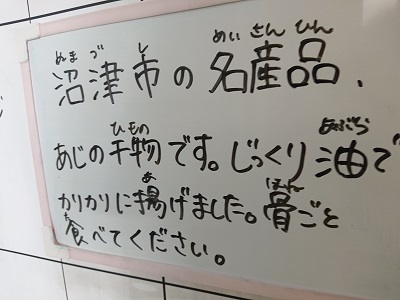 ぬまづ し めいさんひん
沼津市の名産品、
ひもの あぶら
あじの干物です。じっくり油で
あ ほね
カリカリに揚げました。骨ごと
食べてください。